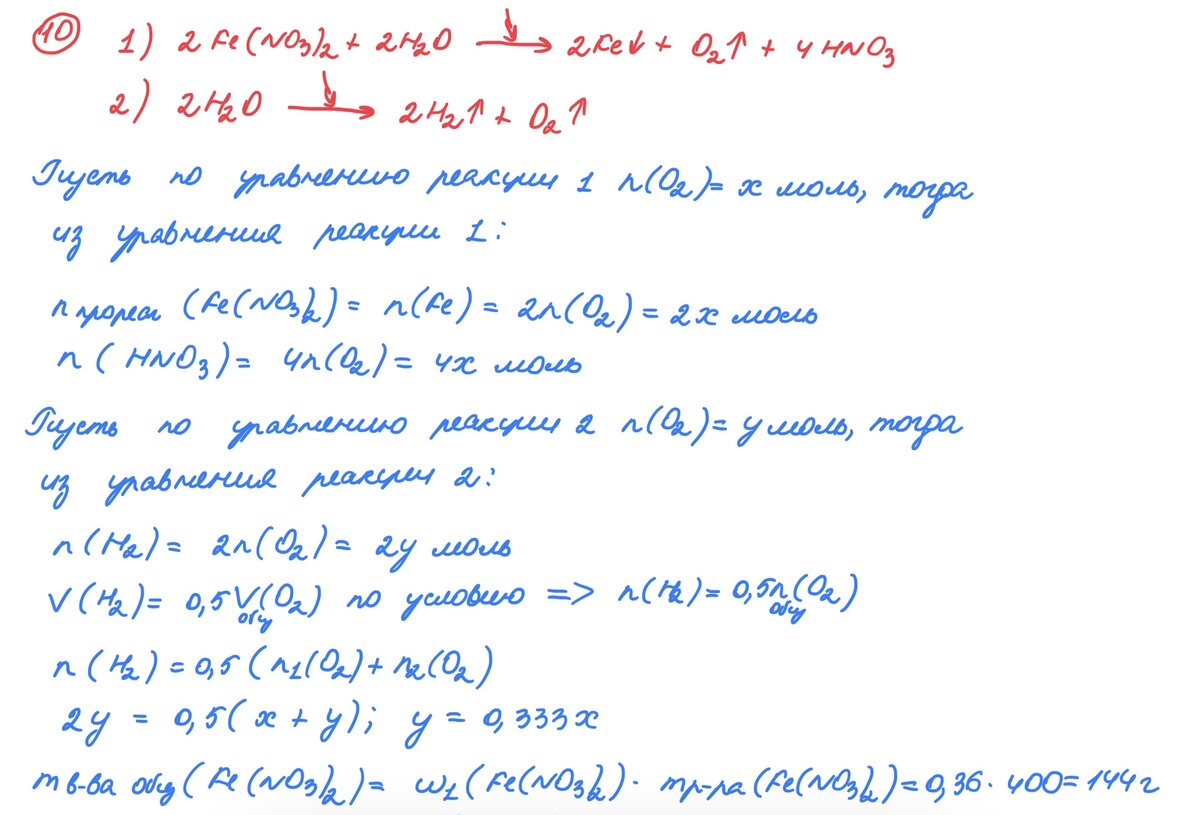 10 1) 2Fe(NO₃)₂ + 2H₂O → 2Fe↓ + O₂↑ + 4HNO₃
2) 2H₂O → 2H₂↑ + O₂↑
Пусть по уравнению реакции 1 n(O₂)= x моль, тогда
из уравнения реакции 1:
n прореаг (Fe(NO₃)₂) = n(Fe) = 2n(O₂) = 2x моль
n (HNO₃) = 4n(O₂) = 4x моль
Пусть по уравнению реакции 2 n(O₂)= y моль, тогда
из уравнения реакции 2:
n(H₂) = 2n(O₂) = 2y моль
V(H₂) = 0,5V общ(O₂) по условию => n(H₂) = 0,5n общ(O₂)
n(H₂) = 0,5(n₁(O₂) + n₂(O₂)
2y = 0,5(x + y); y = 0,333x
m в-ва общ(Fe(NO₃)₂) = ω₁(Fe(NO₃)₂) · m р-ра(Fe(NO₃)₂) = 0,36 · 400 = 144 г